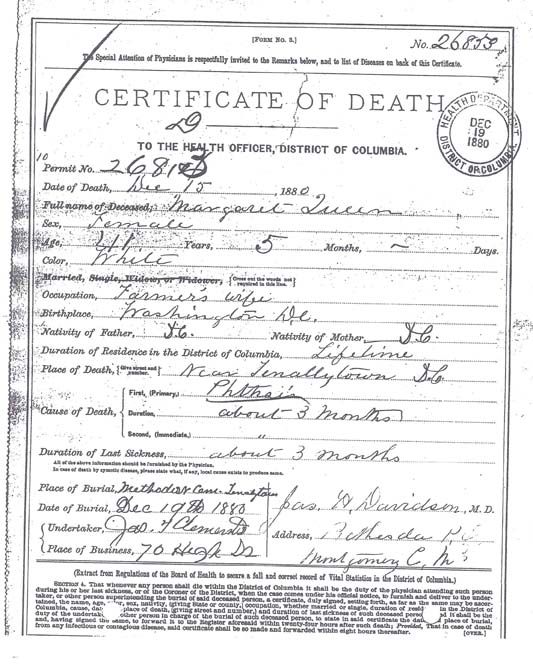 [FORM No. 8.]
No. 26853
The Special Attention of Physicians is respectfully invited to the Remarks below, and to list of Diseases on back of this Certificate.
CERTIFICATE OF DEATH
29
HEALTH DEPARTMENT
DEC
19
1880
DISTRICT OF COLUMBIA
TO THE HEALTH OFFICER, DISTRICT OF COLUMBIA.
Permit No. 
Date of Death, Dec 15, 1880
Full name of Deceased, Margaret Queen
Sex, Female
Age, Years, 5 Months, ~ Days.
Color, White
Married, Single, Widow, or Widower, {Cross out the words not required in this line.}
Occupation, Farmer's wife
Birthplace, Washington D.C.
Nativity of Father, D.C. Nativity of Mother, D.C.
Duration of Residence in the District of Columbia, Lifetime
Place of Death, {Give street and number.} Near Tenallytown D.C.
Cause of Death,
First, (Primary,) Phthisis
Duration, about 3 Months
Second, (Immediate,) "
Duration of Last Sickness, about 3 months
All of the above information should be furnished by the Physician.
In case of death by zymotic disease, please state what, if any, local cause exists to produce same.
Place of Burial, Methodist Cem. Tenallytown
Date of Burial, Dec 19th 1880
Jas. W Davidson, M.D.
Undertaker, Jas. F Clements
Address, Bethesda P.O.
Place of Business, 70 High St
Montgomery C, Md
(Extract from Regulations of the Board of Health to secure a full and correct record of Vital Statistics in the District of Columbia.)
SECTION 4. That whenever any person shall die within the District of Columbia it shall be the duty of the physician attending such person
during his or her last sickness, or of the Coroner of the District, when the case comes under his official notice, to furnish and deliver to the undertaker, or other person superintending the burial of said deceased person, a certificate, duly signed, setting forth, as far as the same may be ascertained, the name, age, color, sex, nativity, (giving State or county,) occupation, whether married or single, duration of in the District of
Columbia, cause, place of death, (giving street and number,) and duration of last sickness of such deceased it shall be the
duty of the other person in charge of the burial of such deceased person, to state in said certificate the place of burial,
and, having signed the same, to forward it to the Register aforesaid within twenty-four hours after such death; Provided, That in case of death
from any infectious or contagious disease, said certificate shall be so made and forwarded within eight hours thereafter.
[OVER.]